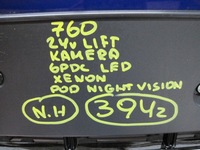 760
24v LIFT
KAMERA
6PDC LED
XENON
POD NIGHT VISION
N.H 3942